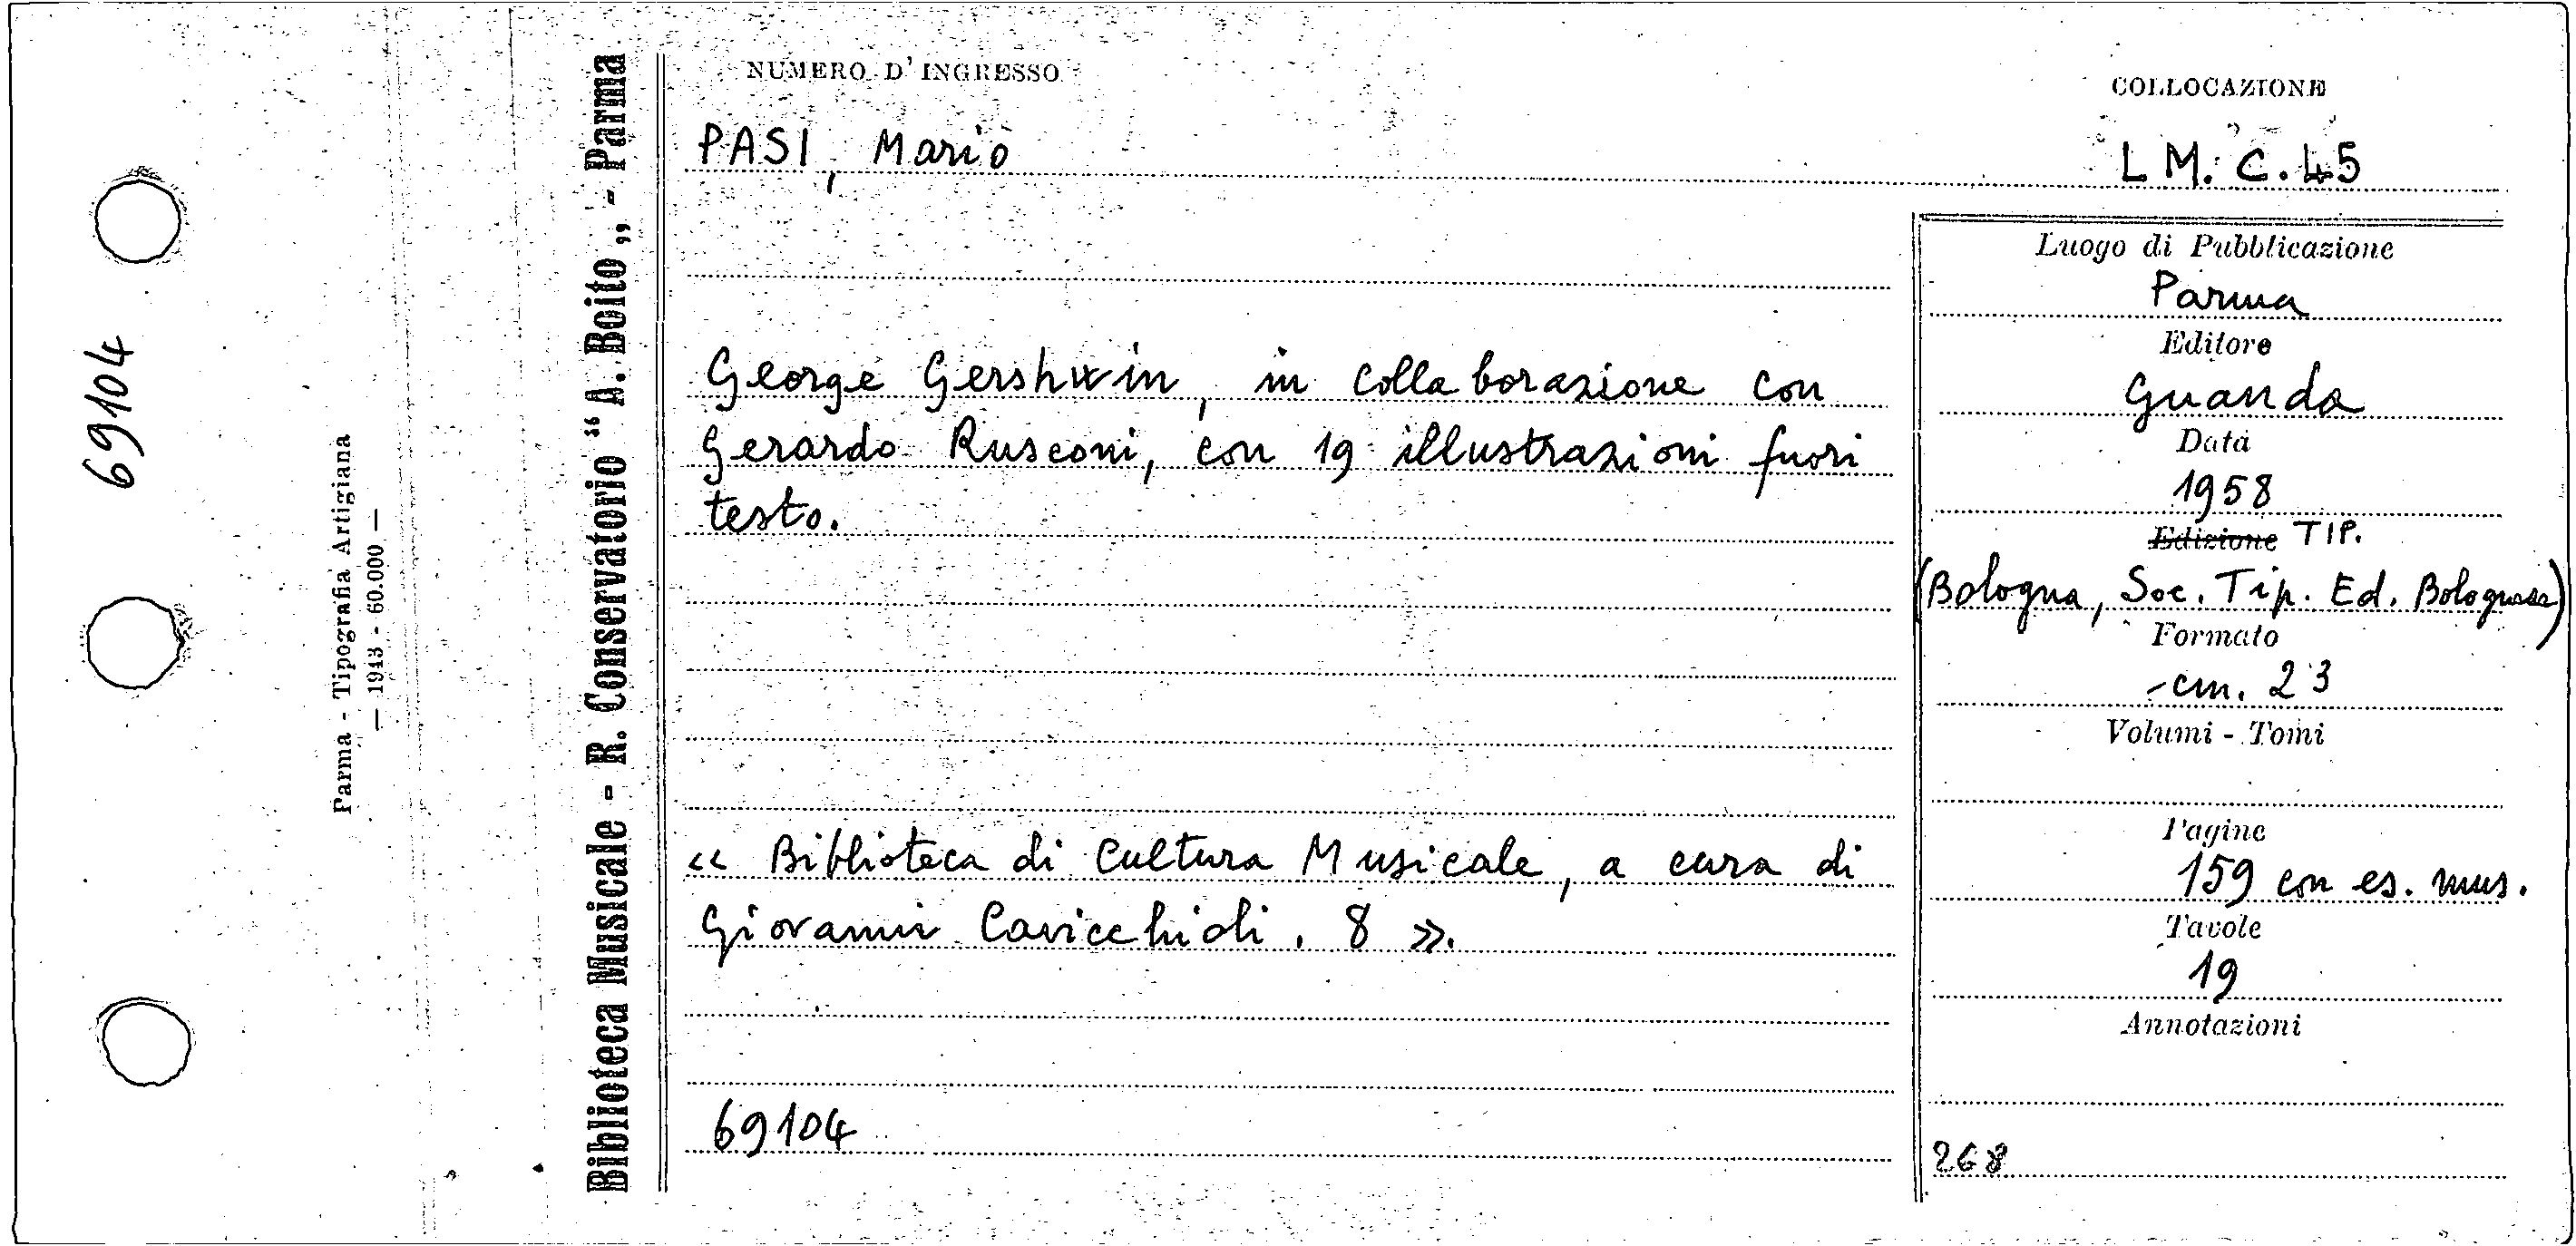 69104
Parma - Tipografia Artigiana
— 1943 - 60.000 —
Biblioteca Musicale - R. Conservatorio “A. Boito„ - Parma
NUMERO D'INGRESSO
COLLOCAZIONE
PASI, Mario
L M. C. 45
George Gershwin, in collaborazione con
Gerardo Rusconi, con 19 illustrazioni fuori
testo.
« Biblioteca di Cultura Musicale, a cura di
Giovanni Cavicchioli. 8 ».
69104
Luogo di Pubblicazione
Parma
Editore
Guanda
Data
1958
Edizione TIP.
(Bologna, Soc. Tip. Ed. Bolognese)
Formato
cm. 23
Volumi - Tomi
Pagine
159 con es. mus.
Tavole
19
Annotazioni
268